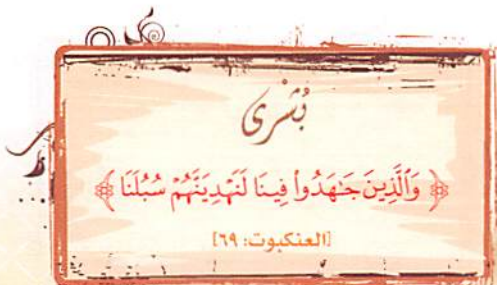 بُشْرَى
﴿ وَٱلَّذِينَ جَٰهَدُوا۟ فِينَا لَنَهْدِيَنَّهُمْ سُبُلَنَا ﴾
[العنكبوت: ٦٩]